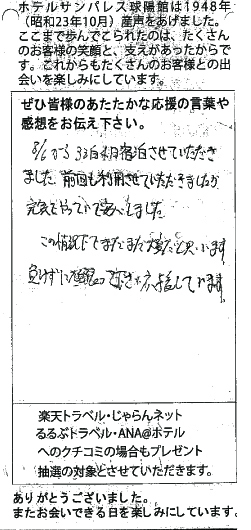 ホテルサンパレス球陽館は1948年
(昭和23年10月)産声をあげました。
ここまで歩んでこられたのは、たくさん
のお客様の笑顔と、支えがあったからで
す。これからもたくさんのお客様との出
会いを楽しみにしています。
ぜひ皆様のあたたかな応援の言葉や
感想をお伝え下さい。
8/6から3泊4日宿泊させていただき
ました。前回も利用させていただきましたが
元気をやっていて安心しました。
この情況下でまだまだ大変だと思います
負けずに頑張って下さい。応援しています。
楽天トラベル・じゃらんネット
るるぶトラベル・ANA@ホテル
へのクチコミの場合もプレゼント
抽選の対象とさせていただきます。
ありがとうございました。
またお会いできる日を楽しみにしています。